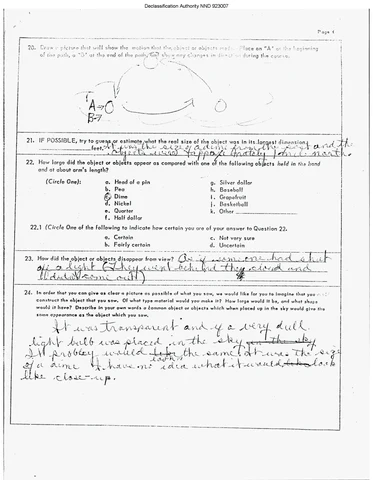 Declassification Authority NND 923007
Page 4
20. Draw a picture that will show the motion that the object or objects made. Place an "A" at the beginning
of the path, a "B" at the end of the path, and show any changes in direction during the course.
A→
B→
21. IF POSSIBLE, try to guess or estimate what the real size of the object was in its largest dimension.
feet. the size of a dime from the east and the
objects
22. How large did the object or objects appear as compared with one of the following objects held in the hand
and at about arm's length?
(Circle One):
a. Head of a pin
b. Pea
c. Dime
d. Nickel
e. Quarter
f. Half dollar
g. Silver dollar
h. Baseball
i. Grapefruit
j. Basketball
k. Other
22.1 (Circle One of the following to indicate how certain you are of your answer to Question 22.
a. Certain
b. Fairly certain
c. Not very sure
d. Uncertain
23. How did the object or objects disappear from view? As if someone had shut
off a light (They went behind the cloud and
didnt come out)
24. In order that you can give as clear a picture as possible of what you saw, we would like for you to imagine that you could
construct the object that you saw. Of what type material would you make it? How large would it be, and what shape
would it have? Describe in your own words a common object or objects which when placed up in the sky would give the
same appearance as the object which you saw.
It was transparent and if a very dull
light bulb was placed in the sky in the sky
It probley would like the same. It was the size
look
of a dime I have no idea what it would like look
like close-up.